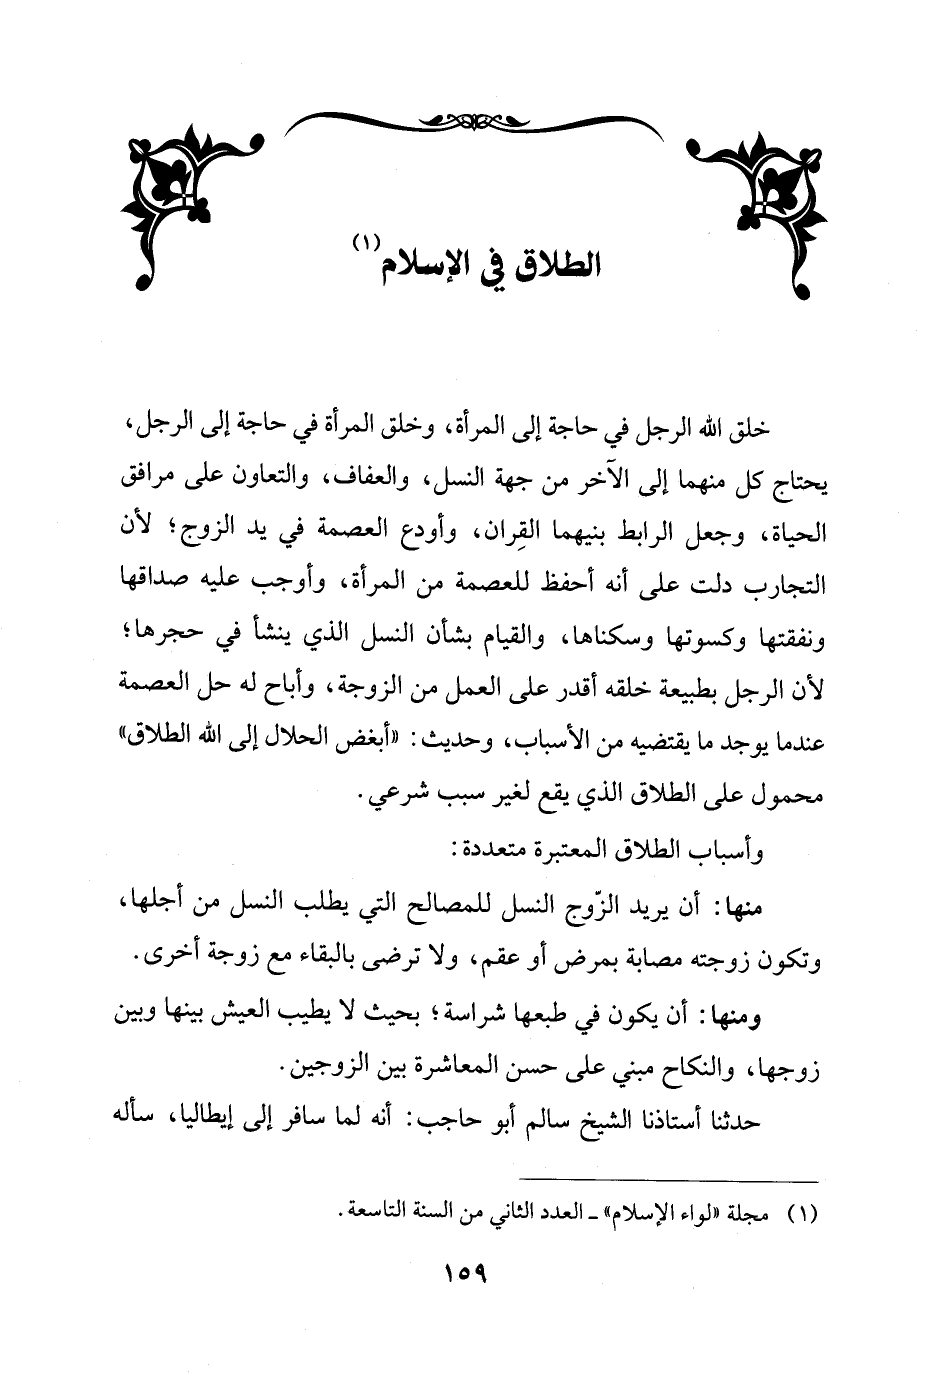 الطلاق في الإسلام(١)
خلق الله الرجل في حاجة إلى المرأة، وخلق المرأة في حاجة إلى الرجل،
يحتاج كل منهما إلى الآخر من جهة النسل، والعفاف، والتعاون على مرافق
الحياة، وجعل الرابط بنيهما القِران، وأودع العصمة في يد الزوج؛ لأن
التجارب دلت على أنه أحفظ للعصمة من المرأة، وأوجب عليه صداقها
ونفقتها وكسوتها وسكناها، والقيام بشأن النسل الذي ينشأ في حجرها؛
لأن الرجل بطبيعة خلقه أقدر على العمل من الزوجة، وأباح له حل العصمة
عندما يوجد ما يقتضيه من الأسباب، وحديث: «أبغض الحلال إلى الله الطلاق»
محمول على الطلاق الذي يقع لغير سبب شرعي.
وأسباب الطلاق المعتبرة متعددة:
منها: أن يريد الزّوج النسل للمصالح التي يطلب النسل من أجلها،
وتكون زوجته مصابة بمرض أو عقم، ولا ترضى بالبقاء مع زوجة أخرى.
ومنها: أن يكون في طبعها شراسة؛ بحيث لا يطيب العيش بينها وبين
زوجها، والنكاح مبني على حسن المعاشرة بين الزوجين.
حدثنا أستاذنا الشيخ سالم أبو حاجب: أنه لما سافر إلى إيطاليا، سأله
(١) مجلة «لواء الإسلام» ـ العدد الثاني من السنة التاسعة.
١٥٩